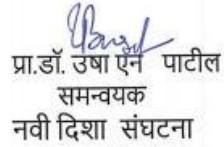 प्रा.डॉ. उषा एन पाटील
समन्वयक
नवी दिशा संघटना